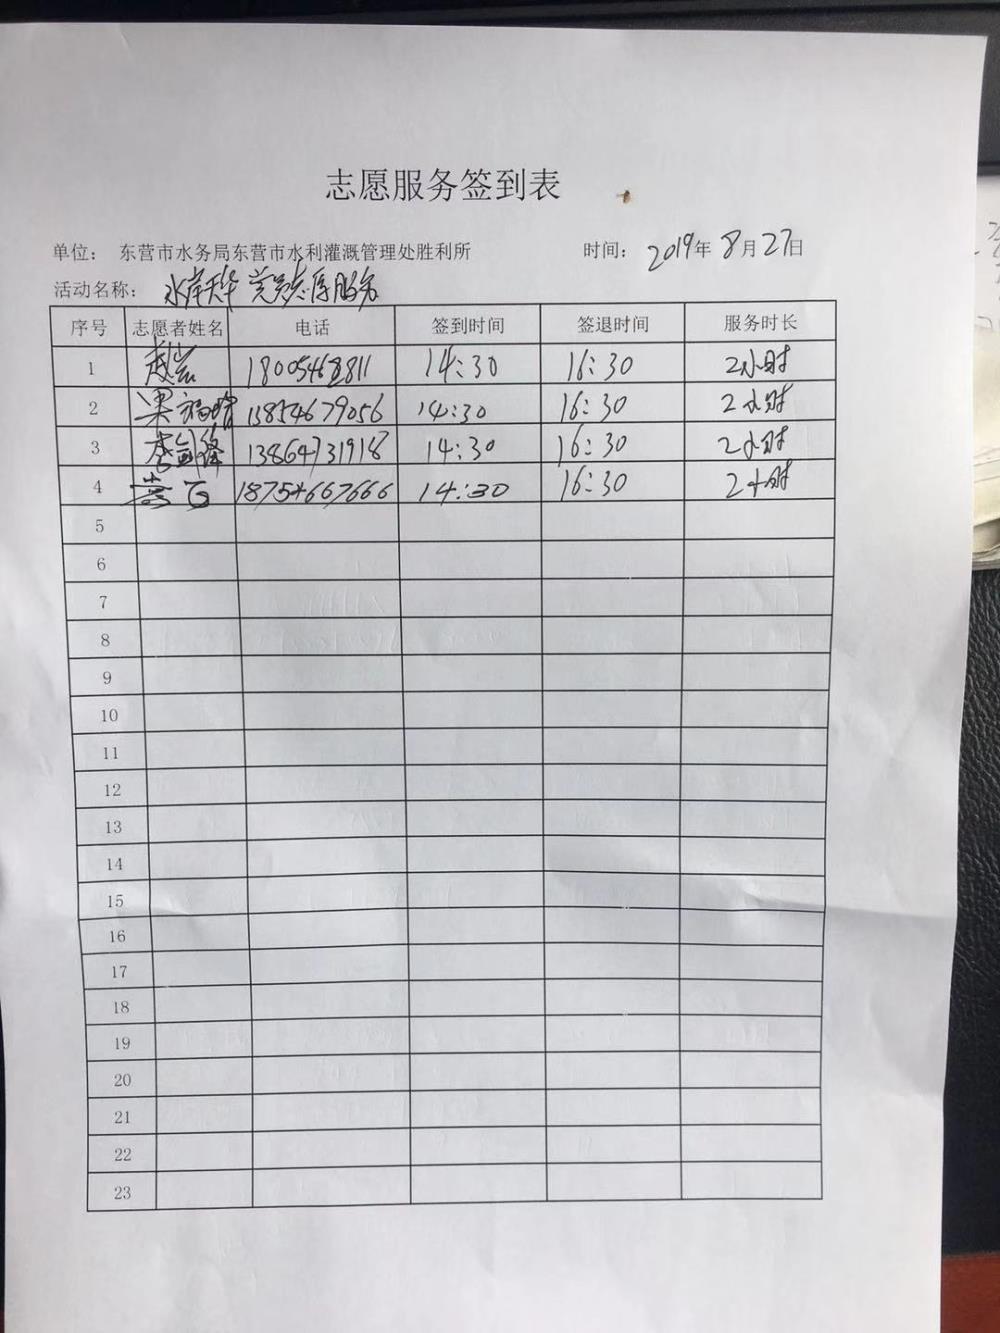 志愿服务签到表
单位： 东营市水务局东营市水利灌溉管理处胜利所 时间： 2019年 8月 27日
活动名称： 水岸天华 党员志愿服务
序号 志愿者姓名 电话 签到时间 签退时间 服务时长
1 18005462811 14:30 16:30 2小时
2 13854679056 14:30 16:30 2小时
3 李剑锋 13864731918 14:30 16:30 2小时
4 18754667666 14:30 16:30 2小时
5
6
7
8
9
10
11
12
13
14
15
16
17
18
19
20
21
22
23